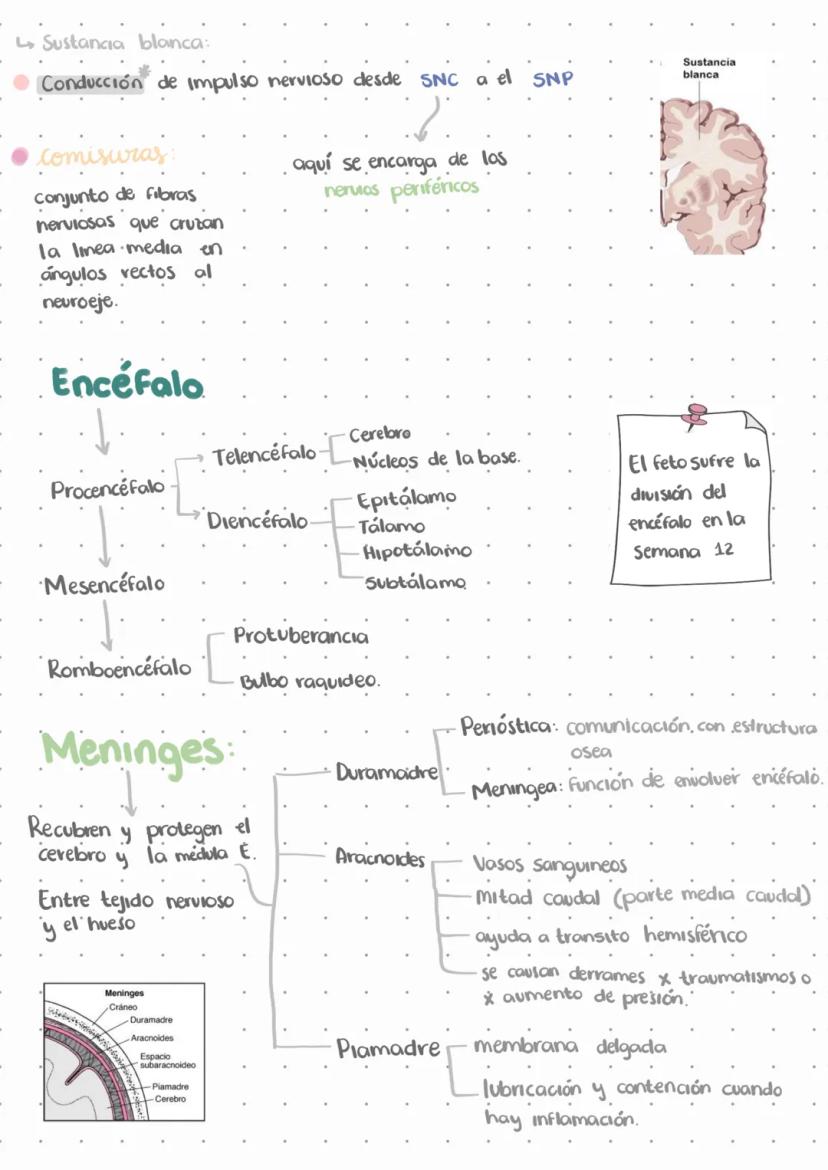 ↳ Sustancia blanca:
Conducción* de impulso nervioso desde SNC a el SNP
Sustancia
blanca
comisuras:
aquí se encarga de los
nervios periféricos
conjunto de fibras
nerviosas que cruzan
la linea media en
ángulos rectos al
neuroeje.
Encéfalo
Procencéfalo
Telencéfalo
Cerebro
Núcleos de la base.
Diencéfalo
Epitálamo
Tálamo
Hipotálamo
Subtálamo
Mesencéfalo
Romboencéfalo
Protuberancia
Bulbo raquideo.
El feto sufre la
división del
encéfalo en la
semana 12
Meninges:
Recubren y protegen el
cerebro y la médula E.
Entre tejido nervioso
y el hueso
Duramadre
Perióstica: comunicación con estructura
osea
Meningea: función de envolver encéfalo.
Aracnoides
Vasos sanguineos
mitad caudal (parte media caudal)
ayuda a transito hemisférico
se causan derrames x traumatismos o
x aumento de presión.
Piamadre
membrana delgada
lubricación y contención cuando
hay inflamación.
Meninges
Cráneo
Duramadre
Aracnoides
Espacio
subaracnoideo
Piamadre
Cerebro